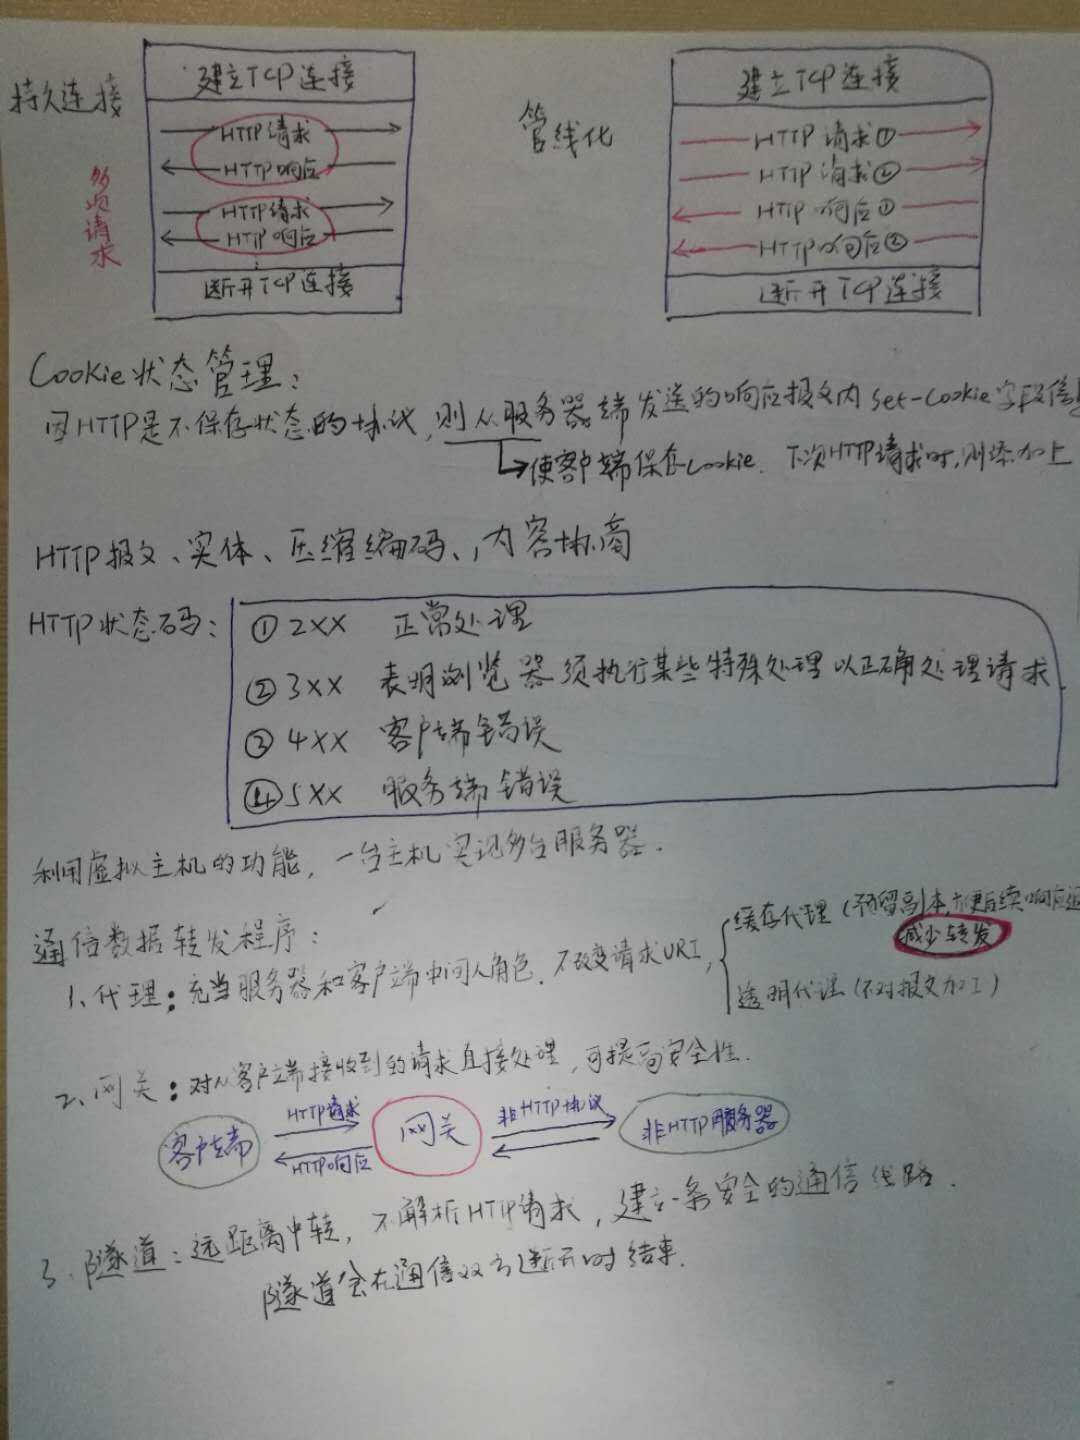 持久连接
多项请求
建立TCP连接
HTTP请求
HTTP响应
HTTP请求
HTTP响应
断开TCP连接
管线化
建立TCP连接
HTTP请求①
HTTP请求②
HTTP响应①
HTTP响应②
断开TCP连接
Cookie状态管理：
因HTTP是不保存状态的协议，则从服务器端发送的响应报文内Set-Cookie字段信息
使客户端保存Cookie. 下次HTTP请求时，则添加上
HTTP报文、实体、压缩编码、内容协商
HTTP状态码：
① 2XX 正常处理
② 3XX 表明浏览器须执行某些特殊处理以正确处理请求.
③ 4XX 客户端错误
④ 5XX 服务端错误
利用虚拟主机的功能，一台主机实现多台服务器.
通信数据转发程序：
1、代理：充当服务器和客户端中间人角色. 不改变请求URI，
缓存代理（预留副本，方便后续响应
减少转发
透明代理（不对报文加工）
2、网关：对从客户端接收到的请求直接处理，可提高安全性.
客户端
HTTP请求
HTTP响应
网关
非HTTP协议
非HTTP服务器
3、隧道：远距离中转，不解析HTTP请求，建立一条安全的通信线路.
隧道会在通信双方断开时结束.